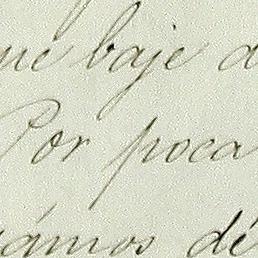 ue baje d
Por poca
ámos dé